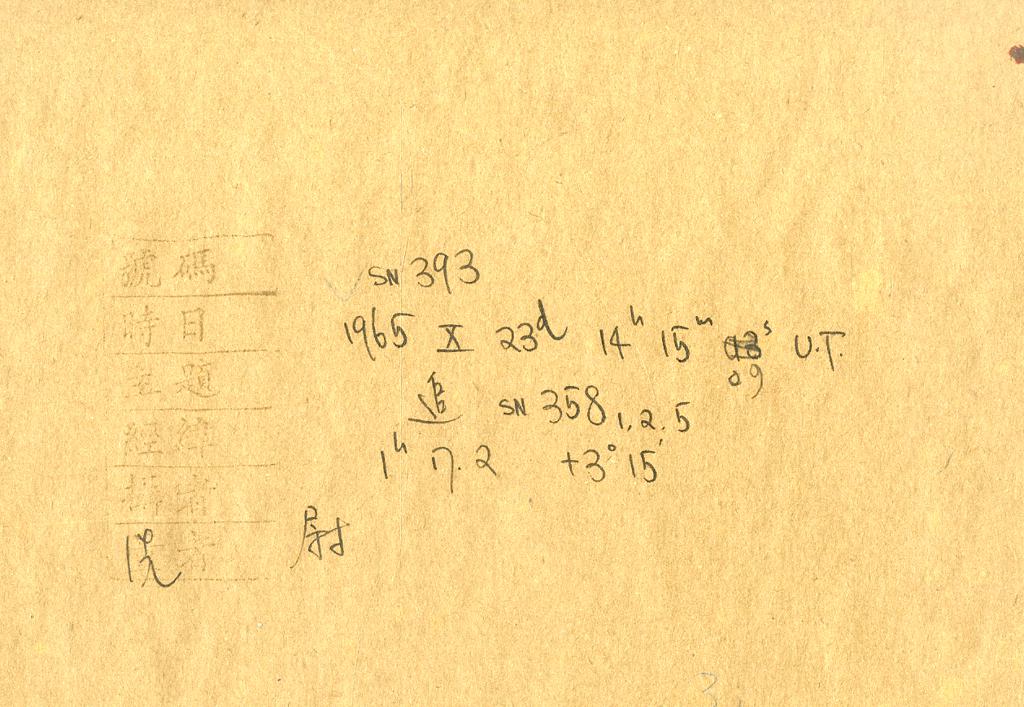 號碼 SN 393
時日 1965 X 23d 14h 15m 09s U.T.
主題 追 SN 358 1,2,5
經緯 1h 17.2 +3° 15'
攝者
洗 尉